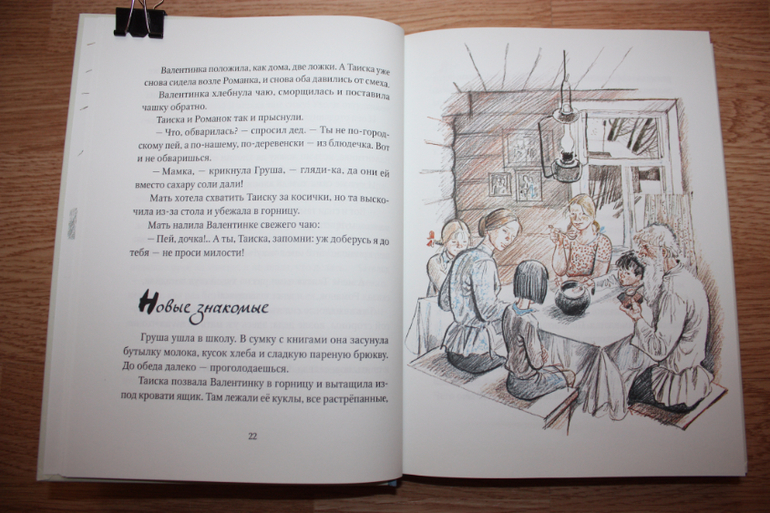 Валентинка положила, как дома, две ложки. А Таиска уже
снова сидела возле Романка, и снова оба давились от смеха.
Валентинка хлебнула чаю, сморщилась и поставила
чашку обратно.
Таиска и Романок так и прыснули.
— Что, обварилась? — спросил дед. — Ты не по-город-
скому пей, а по-нашему, по-деревенски — из блюдечка. Вот
и не обваришься.
— Мамка, — крикнула Груша, — гляди-ка, да они ей
вместо сахару соли дали!
Мать хотела схватить Таиску за косички, но та выско-
чила из-за стола и убежала в горницу.
Мать налила Валентинке свежего чаю:
— Пей, дочка!.. А ты, Таиска, запомни: уж доберусь я до
тебя — не проси милости!
Новые знакомые
Груша ушла в школу. В сумку с книгами она засунула
бутылку молока, кусок хлеба и сладкую пареную брюкву.
До обеда далеко — проголодаешься.
Таиска позвала Валентинку в горницу и вытащила из-
под кровати ящик. Там лежали её куклы, все растрёпанные,
22